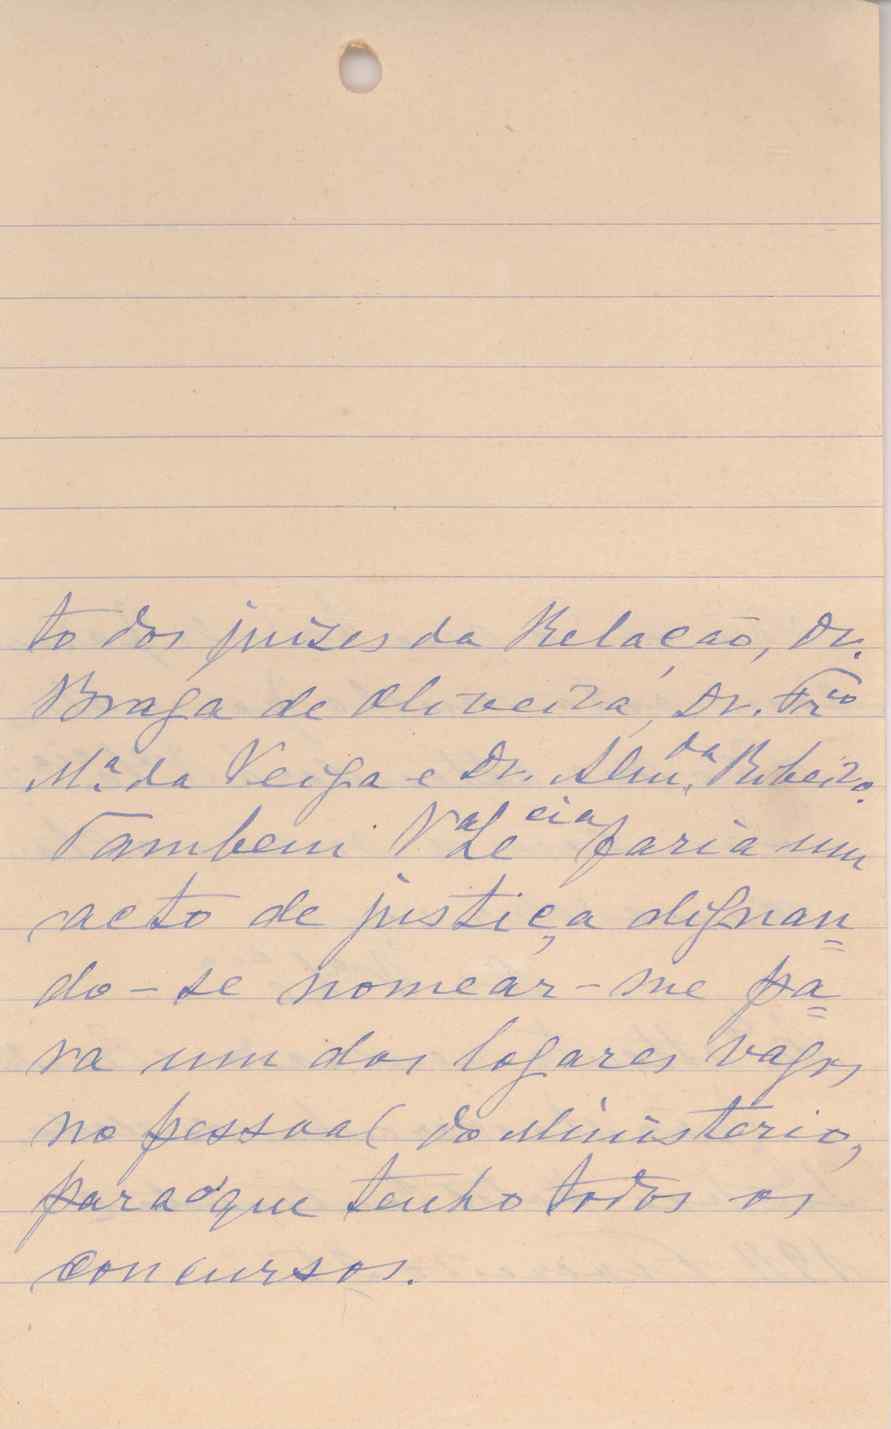 to dos juizes da Relação, Dr.
Braga de Oliveira, Dr. Frco
Mª. da Veiga e Dr. Almda. Ribeiro.
Tambem Va Excia faria um
acto de justiça dignan=
do-se nomear-me pa=
ra um dos logares vagos
no pessoal do Ministerio,
para o que tenho todos os
concursos.